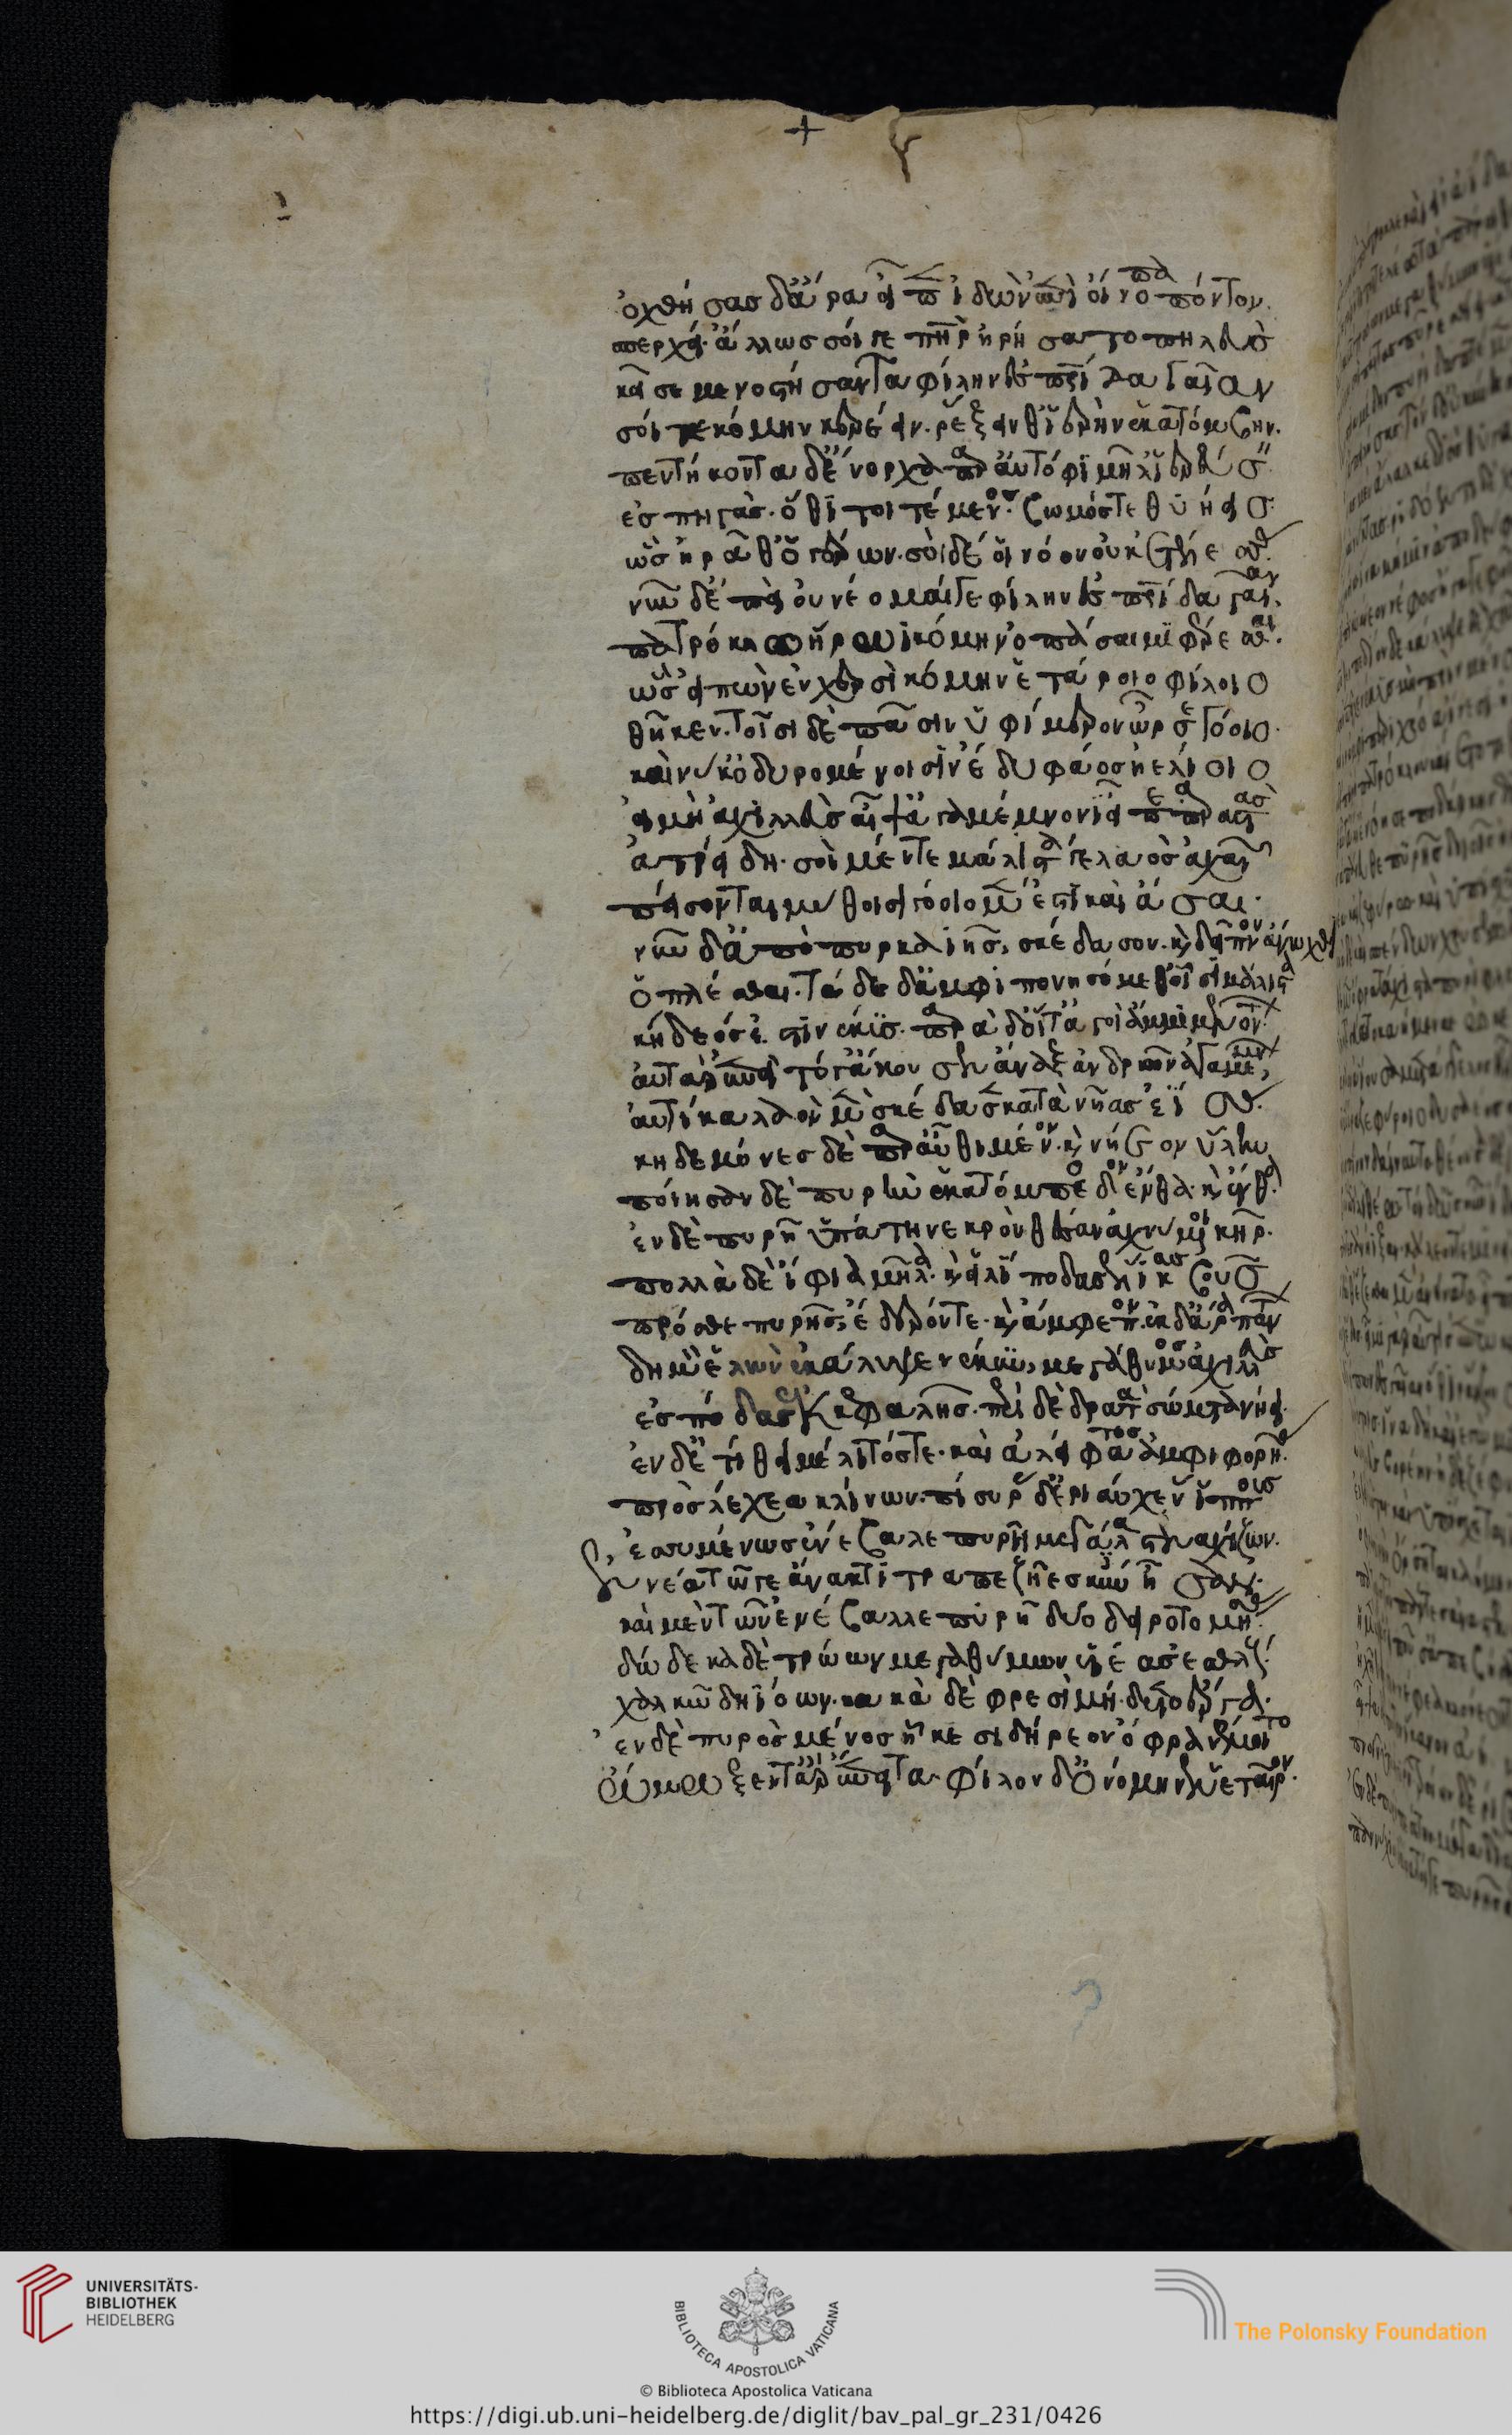 +
ὀχθήσας δ' ἄρα εἶπεν ἰδὼν ἐπὶ οἴνοπα πόντον.
σπερχεί· ἄλλως σοί γε πατὴρ ἠρήσατο πηλεὺς
κεῖσέ με νοστήσαντα φίλην ἐς πατρίδα γαῖαν
σοί τε κόμην κερέειν. ῥέξειν θ' ἱερὴν ἑκατόμβην.
πεντήκοντα δ' ἔνορχα παρ' αὐτόφι μῆλ' ἱερεύσειν
ἐς πηγάς. ὅθι τοι τέμενος. βωμός τε θυήεις.
ὣς ἠρᾶθ' ὁ γέρων. σὺ δέ οἱ νόον οὐκ ἐτέλεσσας.
νῦν δ' ἐπεὶ οὐ νέομαί γε φίλην ἐς πατρίδα γαῖαν.
πατρόκλῳ ἥρωι κόμην ὀπάσαιμι φέρεσθαι.
ὣς εἰπὼν ἐν χερσὶ κόμην ἑτάροιο φίλοιο
θῆκεν. τοῖσι δὲ πᾶσιν ὑφ' ἵμερον ὦρσε γόοιο.
καί νύ κ' ὀδυρομένοισιν ἔδυ φάος ἠελίοιο
εἰ μὴ ἀχιλλεὺς αἶψ' ἀγαμέμνονι εἶπε παραστάς
ἀτρείδη. σοὶ μέν τε μάλιστά γε λαὸς ἀχαιῶν
πείσονται μύθοισι γόοιο μὲν ἔστι καὶ ἆσαι.
νῦν δ' ἀπὸ πυρκαϊῆς σκέδασον. καὶ δεῖπνον ἄνωχθι
ὅπλεσθαι. τάδε δ' ἀμφιπονησόμεθ' οἷσι μάλιστα
κήδεός ἐστι νέκυς. παρὰ δ' οἵ τ' ἀγοὶ ἄμμι μενόντων.
αὐτὰρ ἐπεὶ τό γ' ἄκουσεν ἄναξ ἀνδρῶν ἀγαμέμνων,
αὐτίκα λαὸν μὲν σκέδασεν κατὰ νῆας ἐίσας.
κηδεμόνες δὲ παρ' αὖθι μένον. καὶ νήεον ὕλην
ποίησαν δὲ πυρὴν ἑκατόμπεδον ἔνθα. καὶ ἔνθα.
ἐν δὲ πυρῇ ὑπάτῃ νεκρὸν θέσαν ἀχνύμενοι κῆρ.
πολλὰ δὲ ἴφια μῆλα. καὶ εἰλίποδας ἕλικας βοῦς
πρόσθε πυρῆς ἔδερόν τε. καὶ ἄμφεπον. ἐκ δ' ἄρα πάντων
δημὸν ἑλὼν ἐκάλυψε νέκυν μεγάθυμος ἀχιλλεὺς
ἐς πόδας ἐκ κεφαλῆς. περὶ δὲ δρατὰ σώματα νήει.
ἐν δ' ἐτίθει μέλιτός τε. καὶ ἀλείφατος ἀμφιφορῆας.
πρὸς λέχεα κλίνων. πίσυρας δ' ἐριαύχενας ἵππους
ἐσσυμένως ἐνέβαλε πυρῇ μεγάλα στεναχίζων.
ἐννέα τῷ γε ἄνακτι τραπεζῆες κύνες ἦσαν.
καὶ μὲν τῶν ἐνέβαλλε πυρῇ δύο δειροτομήσας.
δώδεκα δὲ τρώων μεγαθύμων υἱέας ἐσθλούς.
χαλκῷ δηϊόων. κακὰ δὲ φρεσὶ μήδετο ἔργα.
ἐν δὲ πυρὸς μένος ἧκε σιδήρεον ὄφρα νέμοιτο
ᾤμωξέν τ' ἄρ' ἔπειτα. φίλον δ' ὀνόμηνεν ἑταῖρον.
UNIVERSITÄTS-
BIBLIOTHEK
HEIDELBERG
BIBLIOTECA APOSTOLICA VATICANA
The Polonsky Foundation
© Biblioteca Apostolica Vaticana
https://digi.ub.uni-heidelberg.de/diglit/bav_pal_gr_231/0426